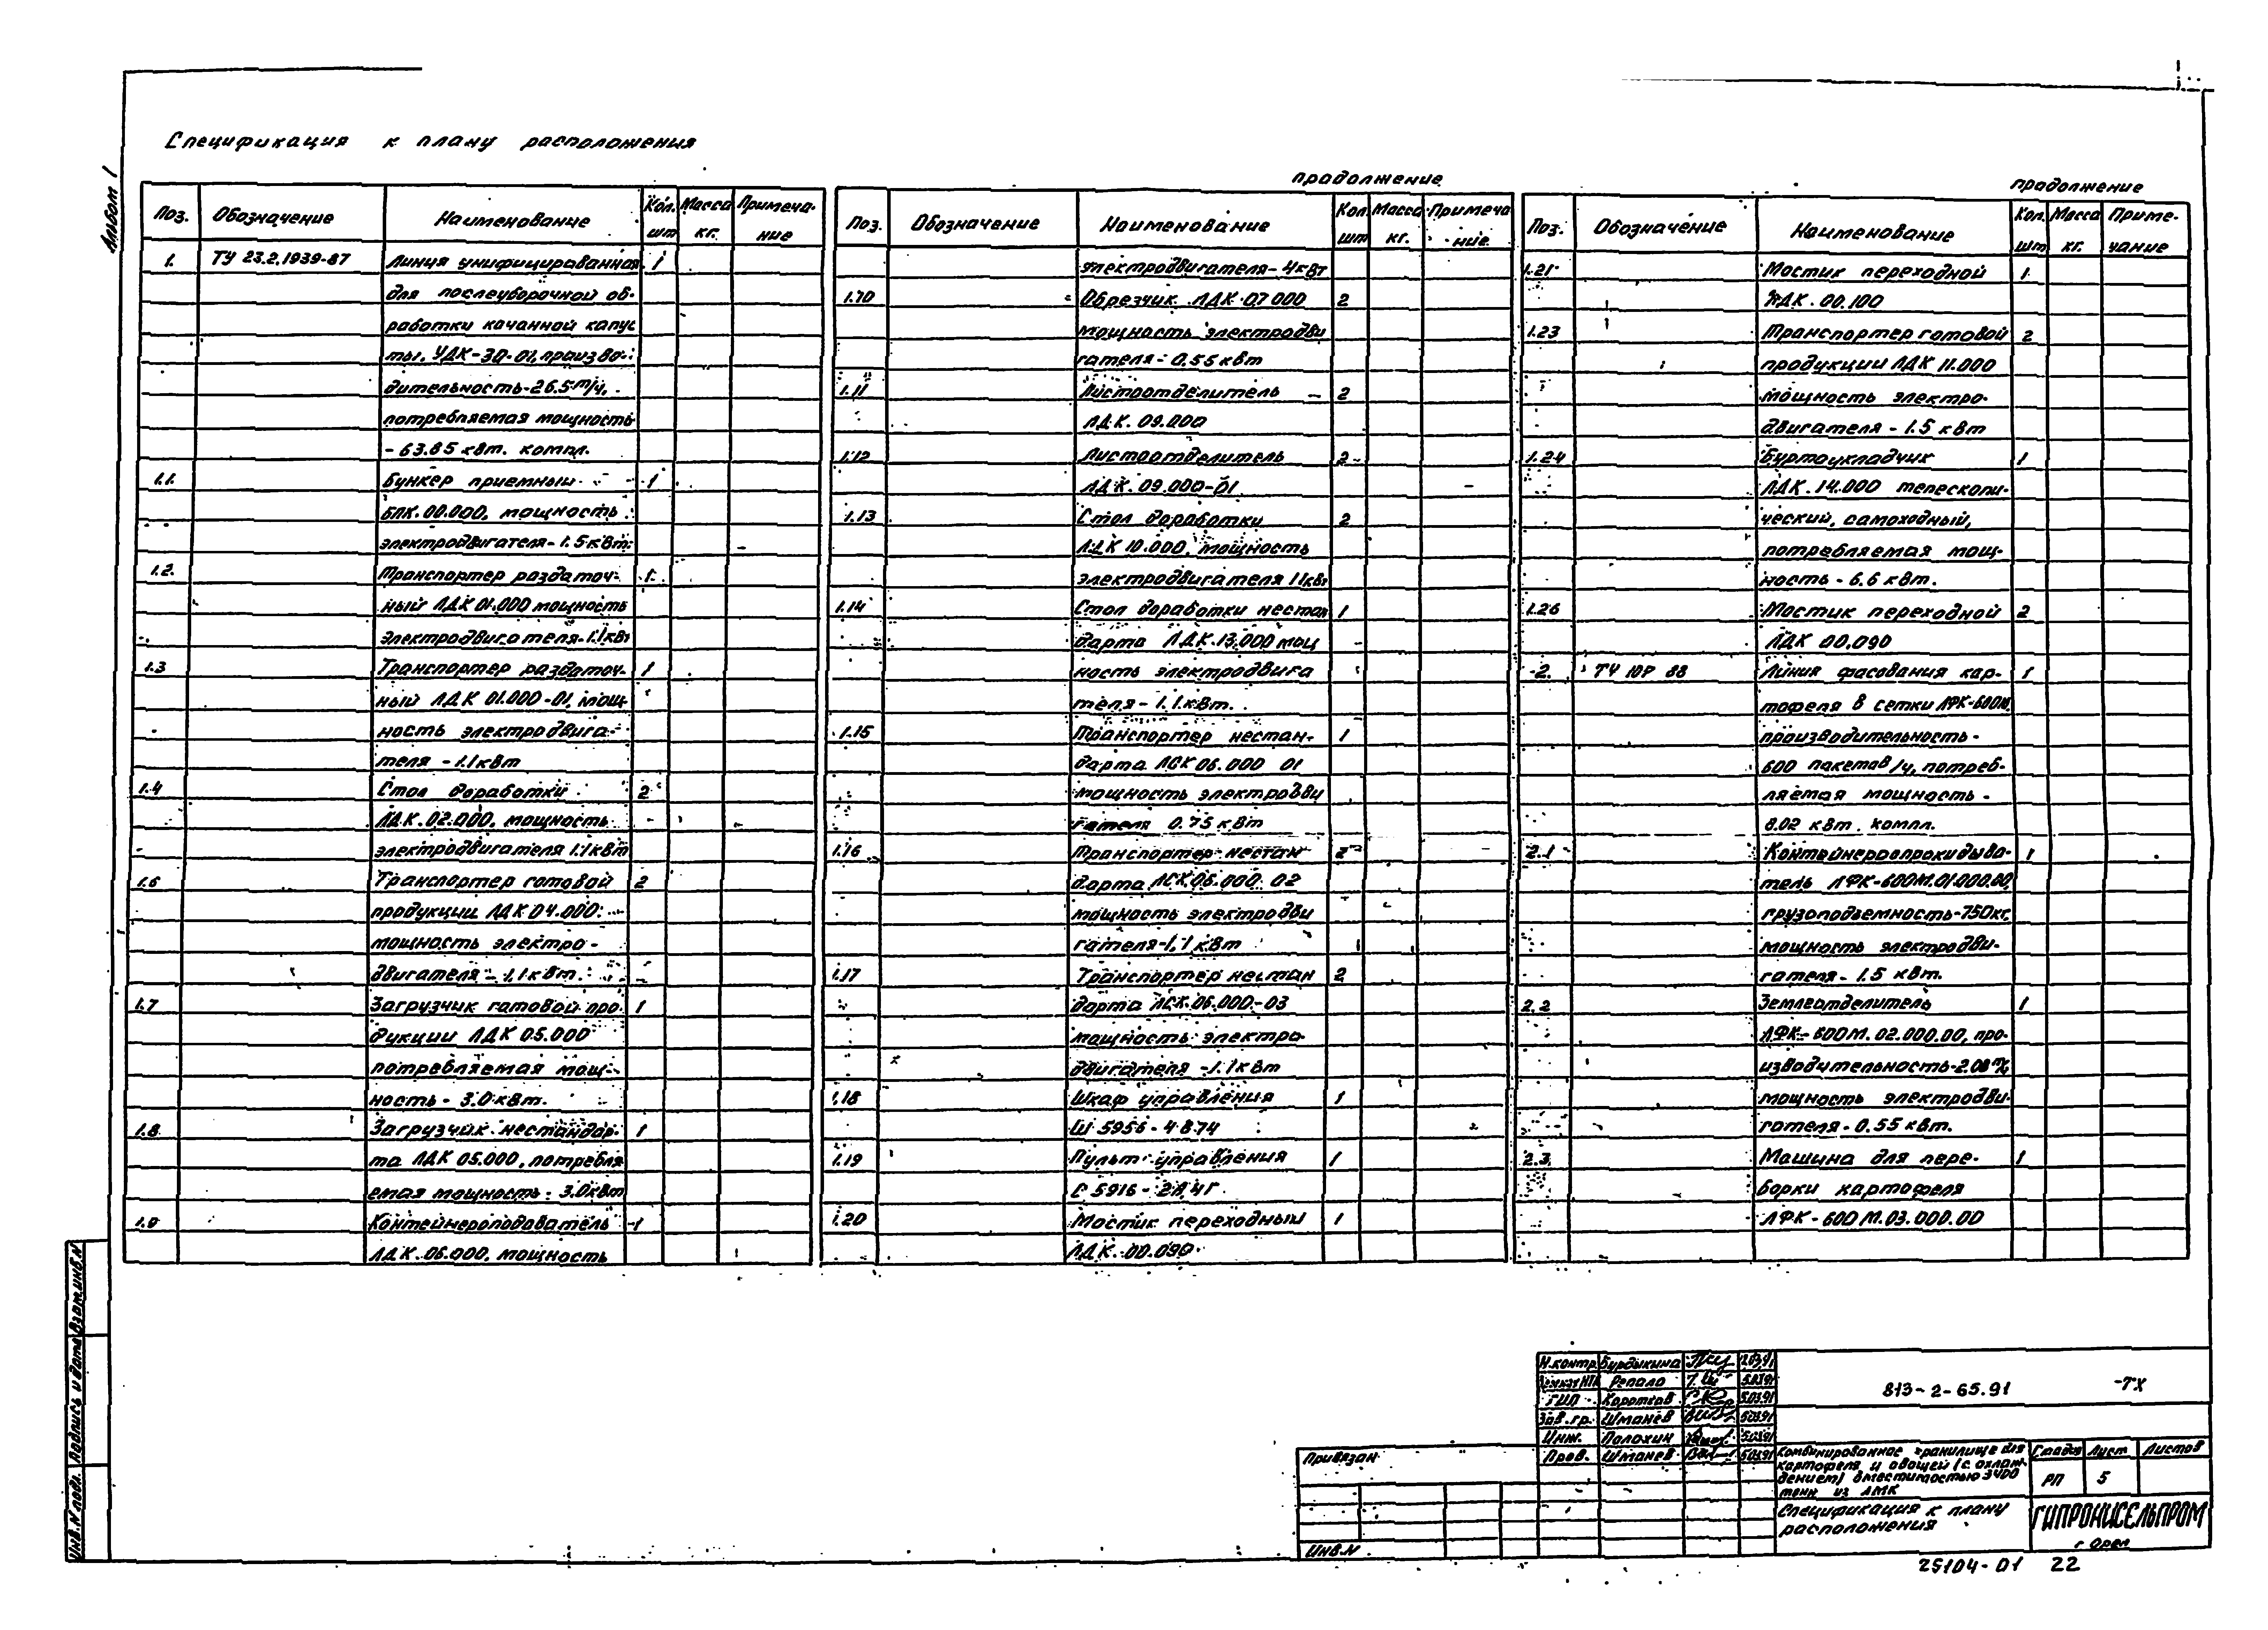 Альбом 1
Спецификация к плану расположения
Поз. Обозначение Наименование Кол. шт Масса кг. Примечание
1. ТУ 23.2.1939-87 Линия унифицированная 1
для послеуборочной об-
работки качанной капус
ты, УДК-30-01, произво-
дительность-26.5т/ч,
потребляемая мощность
-63.85 квт. компл.
1.1. Бункер приемный 1
БПК.00.000, мощность
электродвигателя-1.5квт.
1.2. Транспортер раздаточ- 1
ный ЛДК 01.000 мощность
электродвигателя-1.1квт
1.3 Транспортер раздаточ- 1
ный ЛДК 01.000-01, мощ-
ность электродвига-
теля -1.1квт
1.4 Стол доработки 2
ЛДК.02.000, мощность
электродвигателя 1.1квт
1.6 Транспортер готовой 2
продукции ЛДК 04.000.
мощность электро-
двигателя - 1.1квт.
1.7 Загрузчик готовой про- 1
дукции ЛДК 05.000
потребляемая мощ-
ность - 3.0квт.
1.8 Загрузчик нестандар- 1
та ЛДК 05.000, потребля
емая мощность - 3.0квт
1.9 Контейнероподаватель 1
ЛДК.06.000, мощность
продолжение
Поз. Обозначение Наименование Кол шт Масса кг. Примечание
электродвигателя-4квт
1.10 Обрезчик ЛДК.07000 2
мощность электродви
гателя-0.55 квт
1.11 Листоотделитель 2
ЛДК.09.000
1.12 Листоотделитель 2
ЛДК.09.000-01
1.13 Стол доработки 2
ЛДК 10.000, мощность
электродвигателя 1.1квт
1.14 Стол доработки нестан 1
дарта ЛДК.13.000 мощ
ность электродвига
теля-1.1.квт.
1.15 Транспортер нестан- 1
дарта ЛСК 06.000 01
мощность электродви
гателя 0.75 квт
1.16 Транспортер нестан 2
дарта ЛСК.06.000 02
мощность электродви
гателя-1.1 квт
1.17 Транспортер нестан 2
дарта ЛСК.06.000-03
мощность электро-
двигателя -1.1квт
1.18 Шкаф управления 1
Ш 5956-4874
1.19 Пульт управления 1
С 5916-
1.20 Мостик переходный 1
ЛДК.00.090
продолжение
Поз. Обозначение Наименование Кол. шт Масса кг. Приме-чание
1.21 Мостик переходной 1
ЛДК.00.100
1.23 Транспортер готовой 2
продукции ЛДК 11.000
мощность электро-
двигателя - 1.5 квт
1.24 Буртоукладчик 1
ЛДК.14.000 телескопи-
ческий, самоходный,
потребляемая мощ-
ность - 6.6 квт.
1.26 Мостик переходной 2
ЛДК 00.090
2. ТУ ЮР 88 Линия фасования кар- 1
тофеля в сетки ЛФК-600М,
производительность-
600 пакетов/ч, потреб-
ляемая мощность -
8.02 квт. компл.
2.1 Контейнероопрокидыва- 1
тель ЛФК-600М.01.000.00,
грузоподъемность-750кг,
мощность электродви-
гателя - 1.5 квт.
2.2 Землеотделитель 1
ЛФК-600М.02.000.00, про-
изводительность-2.08т/ч
мощность электродви-
гателя - 0.55 квт.
2.3 Машина для пере- 1
борки картофеля
ЛФК-600М.03.000.00
Взам.инв.N
Подпись и дата
Инв.N подл.
Н.контр Бурдыкина
Репало 5.03.91
ГИП Коротков 5.03.91
Зав.гр. Шманев 5.03.91
Инж. Полохин 5.03.91
Пров. Шманев 5.03.91
Привязан
Инв.N
813-2-65.91 -ТХ
Комбинированное хранилище для
картофеля и овощей (с охлаж-
дением) вместимостью 3400
тонн из ЛМК
Стадия Лист Листов
РП 5
Спецификация к плану
расположения
ГИПРОНИСЕЛЬПРОМ
г Орел
25104-01 22